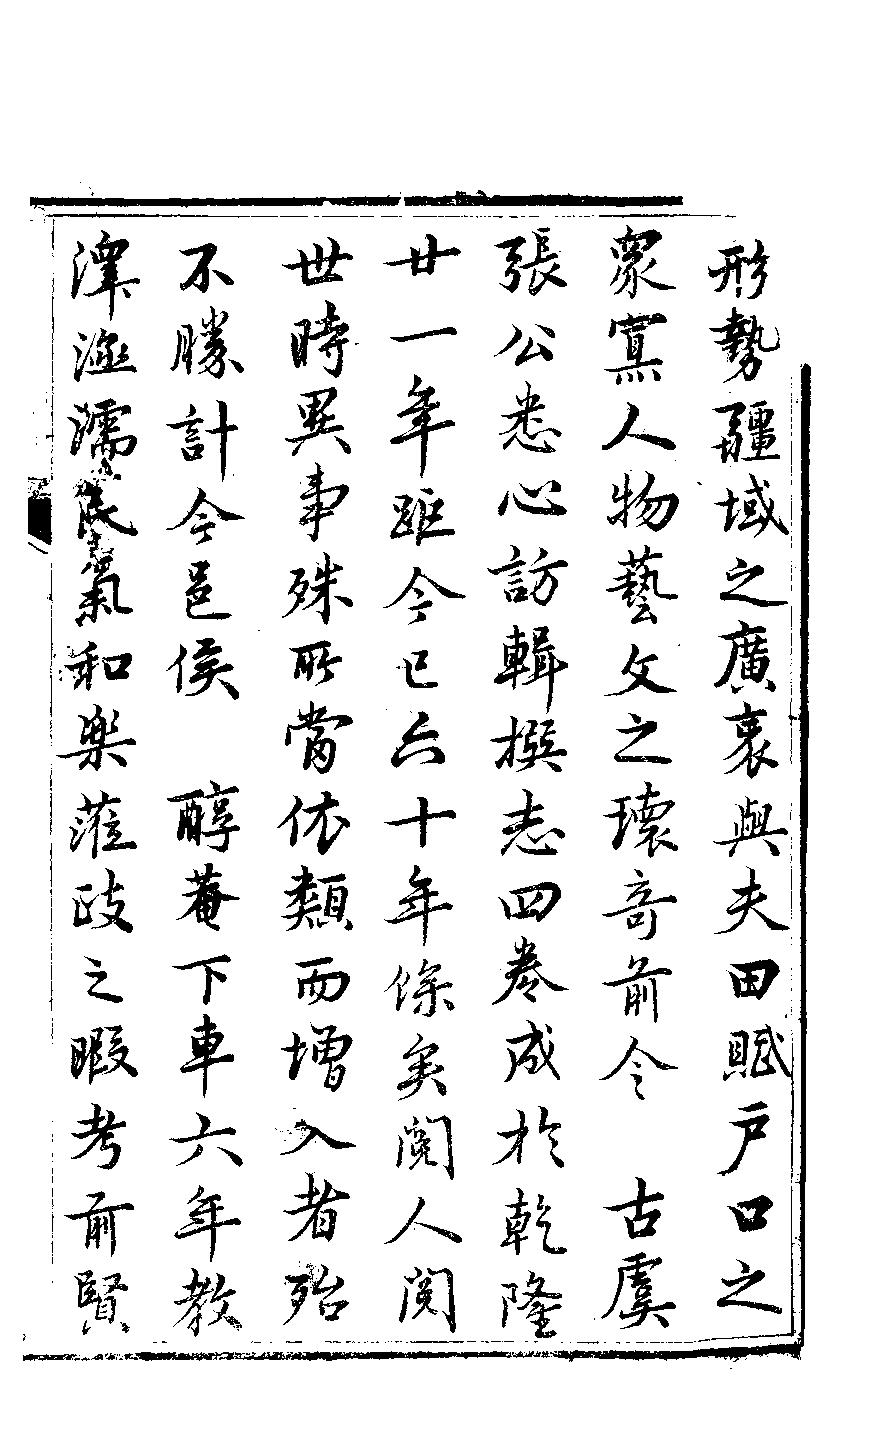 形勢疆域之廣袤與夫田賦戶口之
衆寡人物藝文之瓌奇前令　古虞
張公悉心訪輯撰志四卷成於乾隆
廿一年距今已六十年餘矣閱人閱
世時異事殊所當依類而增入者殆
不勝計今邑侯　醇菴下車六年教
澤涵濡民氣和樂蒞岐之暇考前賢